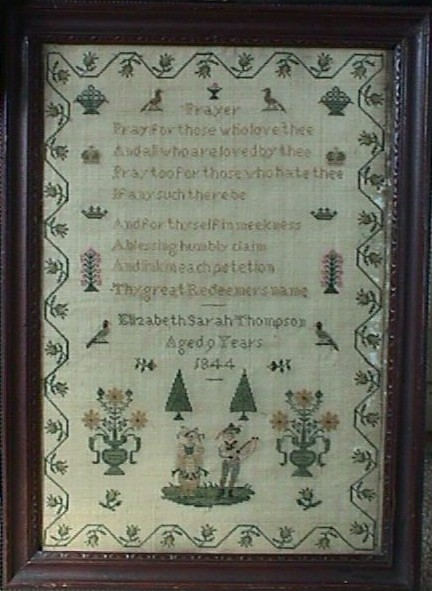 Prayer
Pray for those who love thee
And all who are loved by thee
Pray too for those who hate thee
If any such there be
And for thyself in meekness
A blessing humbly claim
And link me ach petetion
Thy great Redeemers name
Elizabeth Sarah Thompson
Aged 9 Years
1844